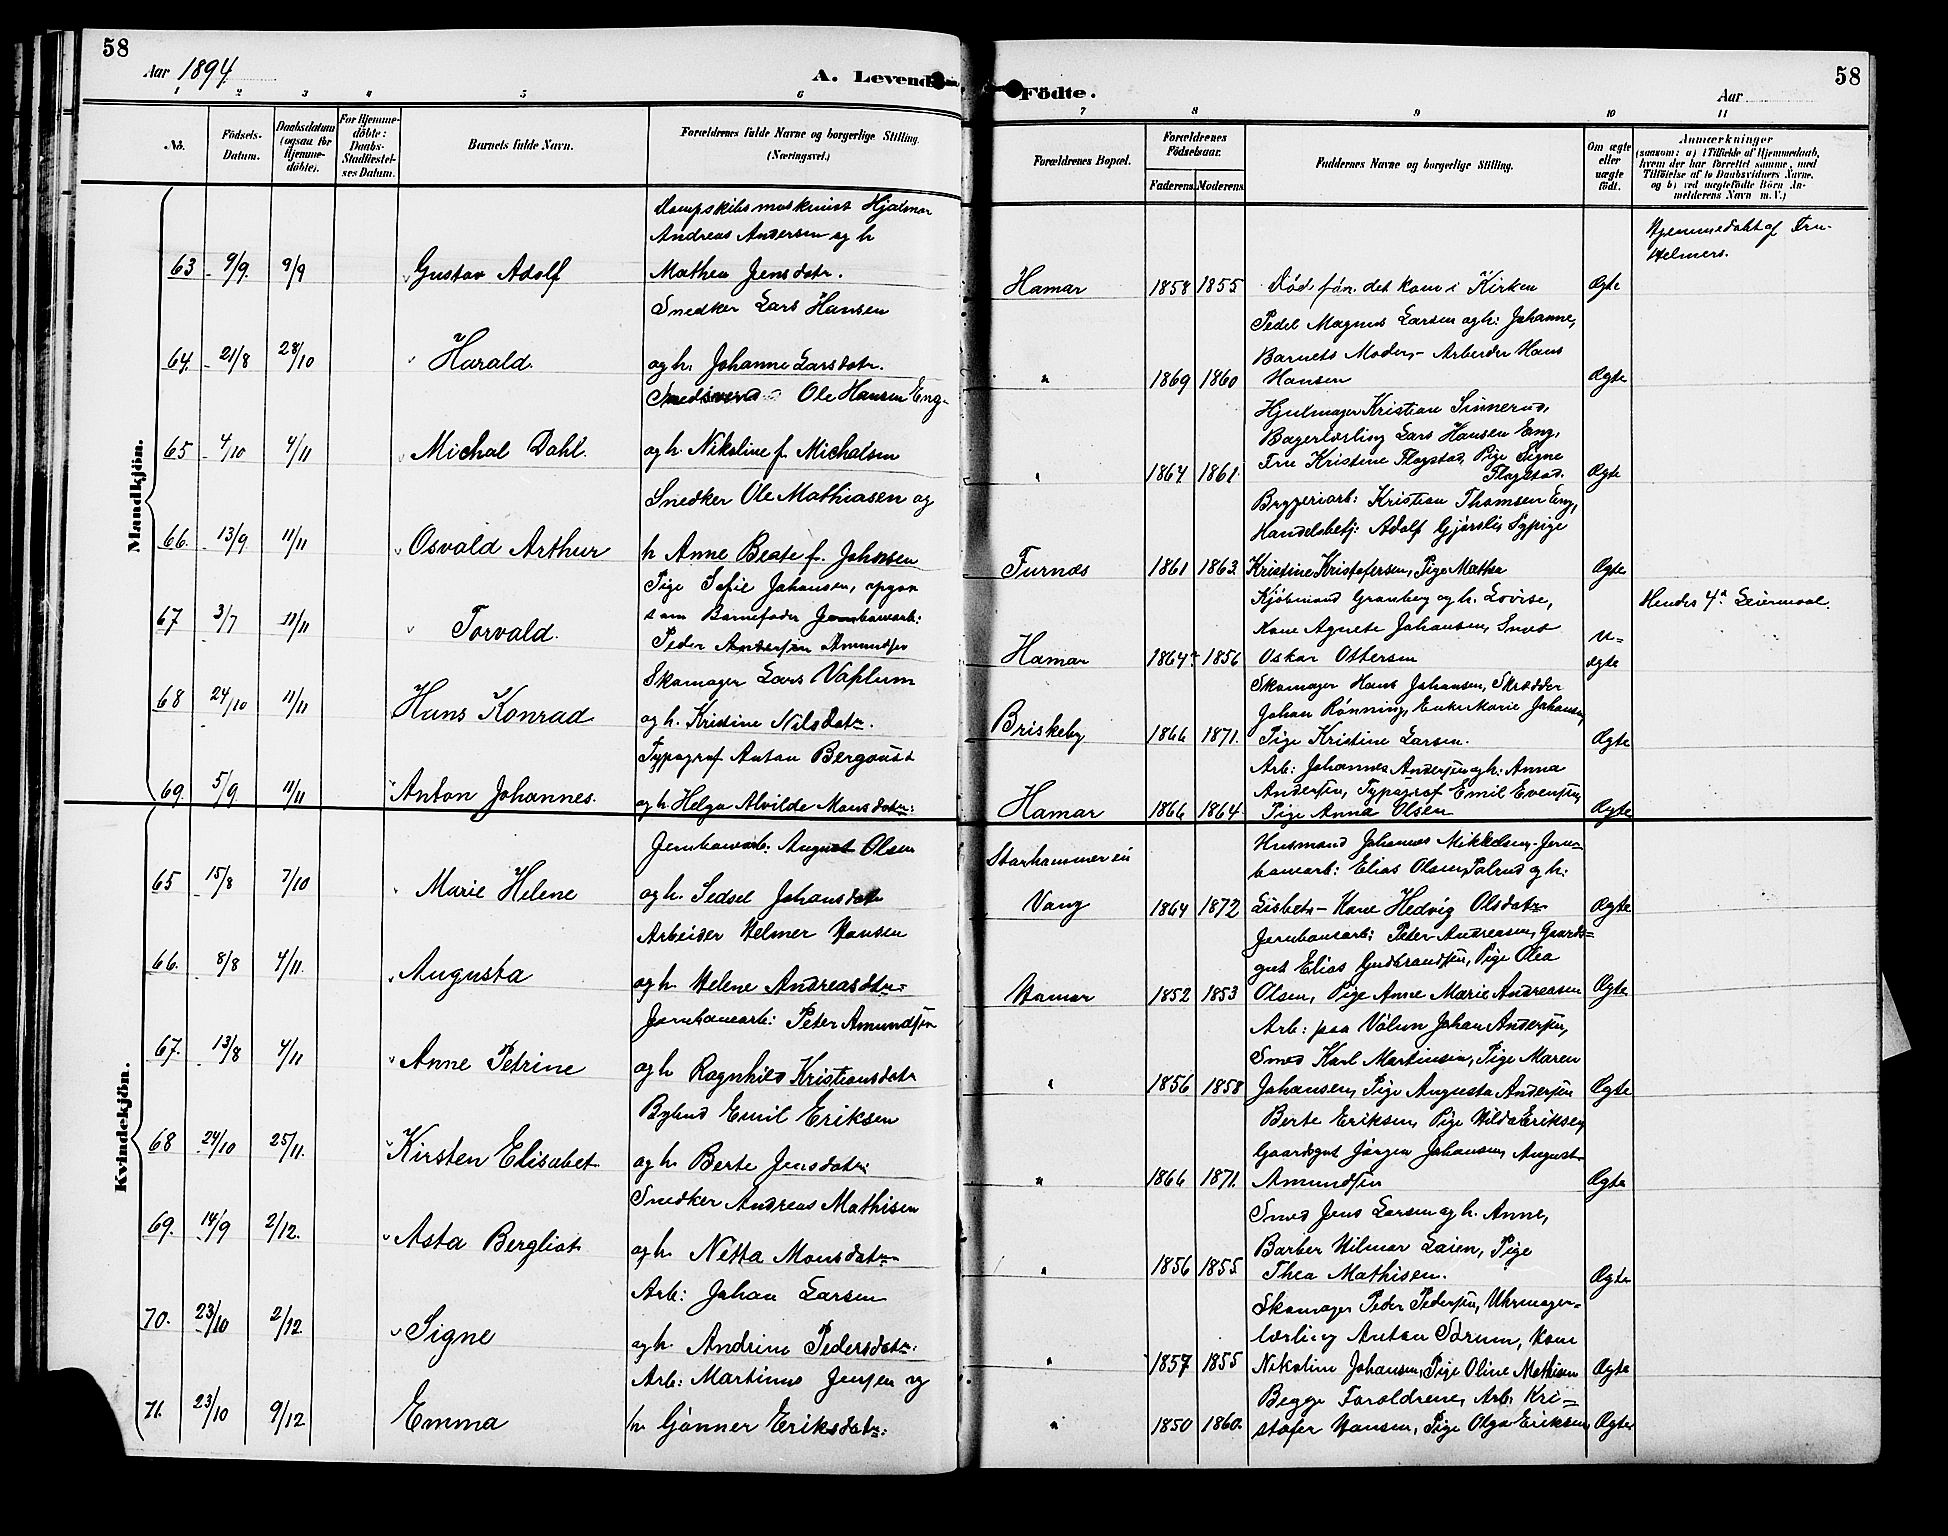 58
Aar 1894
A. Levende
1 2 3 4 5 6
No.
Födsels-
Datum.
Daabsdatum
(ogsaa for
Hjemme-
döbte).
For Hjemme-
döbte:
Daabs-
Stadfæstel-
ses Datum.
Barnets fulde Navn.
Forældrenes fulde Navne og borgerlige Stilling
(Næringsvei.)
Mandkjön.
Dampskibsmaskinist Hjalmar
Andreas Andersen og h
63 9/9. 9/9 Gustav Adolf Mathea Jensdatr.
Snedker Lars Hansen
64. 21/8 28/10 Harald. og h. Johanne Larsdatr.
Ole Hansen Eng-
65 4/10 4/11 Michal Dahl. og h. Nikoline f. Michalsen
Snedker Ole Mathiasen og
66. 13/9 11/11 Osvald Arthur h Anne Beate f. Johnsen
Pige Sofie Johansen, opgav
67 3/7 11/11 Torvald. som Barnefader Jernbanearb:
Peder Andersen Amundsen
Skomager Lars Vaplum
68 24/10 11/11 Hans Konrad og h. Kristine Nilsdatr.
Typograf Anton Bergquist
69. 5/9 11/11 Anton Johannes. og h. Helga Alvilde Monsdatr:
Kvindekjön.
Jernbanearb: August Olsen
65 15/8 7/10 Marie Helene og h. Sedsel Johansdatr
Arbeider Helmer Hansen
66. 8/8 4/11. Augusta og h Helene Andreasdatr:
Jernbanearb: Peter Amundsen
67. 13/8 4/11 Anne Petrine og h Ragnhild Kristiansdatr
Bybud Emil Eriksen
68 24/10 25/11. Kirsten Elisabet og h. Berte Jensdatr:
Snedker Andreas Mathisen
69. 14/9 2/12. Asta Bergliot og h. Netta Monsdatr
Arb: Johan Larsen
70. 23/10 2/12 Signe og h. Andrine Pedersdatr:
Arb: Martinus Jensen og
71. 23/10 9/12. Emma h. Gjønner Eriksdatr:
58
Födte.
Aar
7 8 9 10 11
Forældrenes Bopæl.
Forældrenes
Födselsaar.
Faderens. Moderens.
Faddernes Navne og borgerlige Stilling.
Om ægte
eller
uægte
födt.
Anmærkninger
(saasom: a) i Tilfælde af Hjemmedaab,
hvem der har forrettet samme, med
Tilföielse af to Daabsvidners Navne,
og b) ved uægtefödte Börn An-
melderens Navn m. V.)
Hjemmedøbt af Fru
Helmers.
Hamar 1858 1855 Død før det kom i Kirken Ægte
Pedel Magnus Larsen og h: Johanne,
Barnets Moder,- Arbeider Hans
" 1869 1860 Hansen Ægte
Hjulmager Kristian Sinnerud,
Bagerlærling Lars Hansen Eng,
" 1864 1861. Frue Kristine Flagstad, Pige Signe
Flagstad. Ægte
Bryggeriarb: Kristian Thomsen Eng,
Handelsbetj: Adolf Gjørslis Sypige
Furnæs 1861 1863. Kristine Kristofersen, Pige Mathea Ægte
Kjøbmand Granberg og h. Lovise, Hendes 4de Leiermaal.
Kone Agnete Johansen, Smed
Hamar 1864 1856 Oskar Ottersen U=
ægte
Skomager Hans Johansen, Skrædder
Johan Rønning, Enke Marie Johansen,
Briskeby 1866 1871. Pige Kristine Larsen. Ægte
Arb: Johannes Andersen og h: Anna
Andersen, Typograf Emil Evensen,
Hamar 1866 1864. Pige Anna Olsen Ægte
Starhammer ei Husmand Johannes Mikkelsen, Jern-
banearb: Elias Olsen Palrud og h:
Vang 1864 1872 Lisbet,- Kone Hedvig Olsdatr Ægte
Jernbanearb: Peter Andreasen, Gaards=
gut Elias Gudbrandsen, Pige Olea
Hamar 1852 1853 Olsen, Pige Anne Marie Andreasen Ægte
Arb: paa Vølun Johan Andersen,
Smed Karl Martinsen, Pige Maren
" 1856 1858 Johansen, Pige Augusta Andersen Ægte
Berte Eriksen, Pige Hilda Eriksen,
Gaardsgut Jørgen Johansen, August
" 1866 1871. Amundsen Ægte
Smed Jens Larsen og h. Anne,
Barber Hilmar Laien, Pige
" 1856 1855 Thea Mathisen. Ægte
Skomager Peder Pedersen, Uhrmager-
lærling Anton Sørum, Kone
" 1857 1855 Nikoline Johansen, Pige Oline Mathisen Ægte
Begge Forældrene, Arb. Kri=
" 1850 1860. stofer Hansen, Pige Olga Eriksen, Ægte